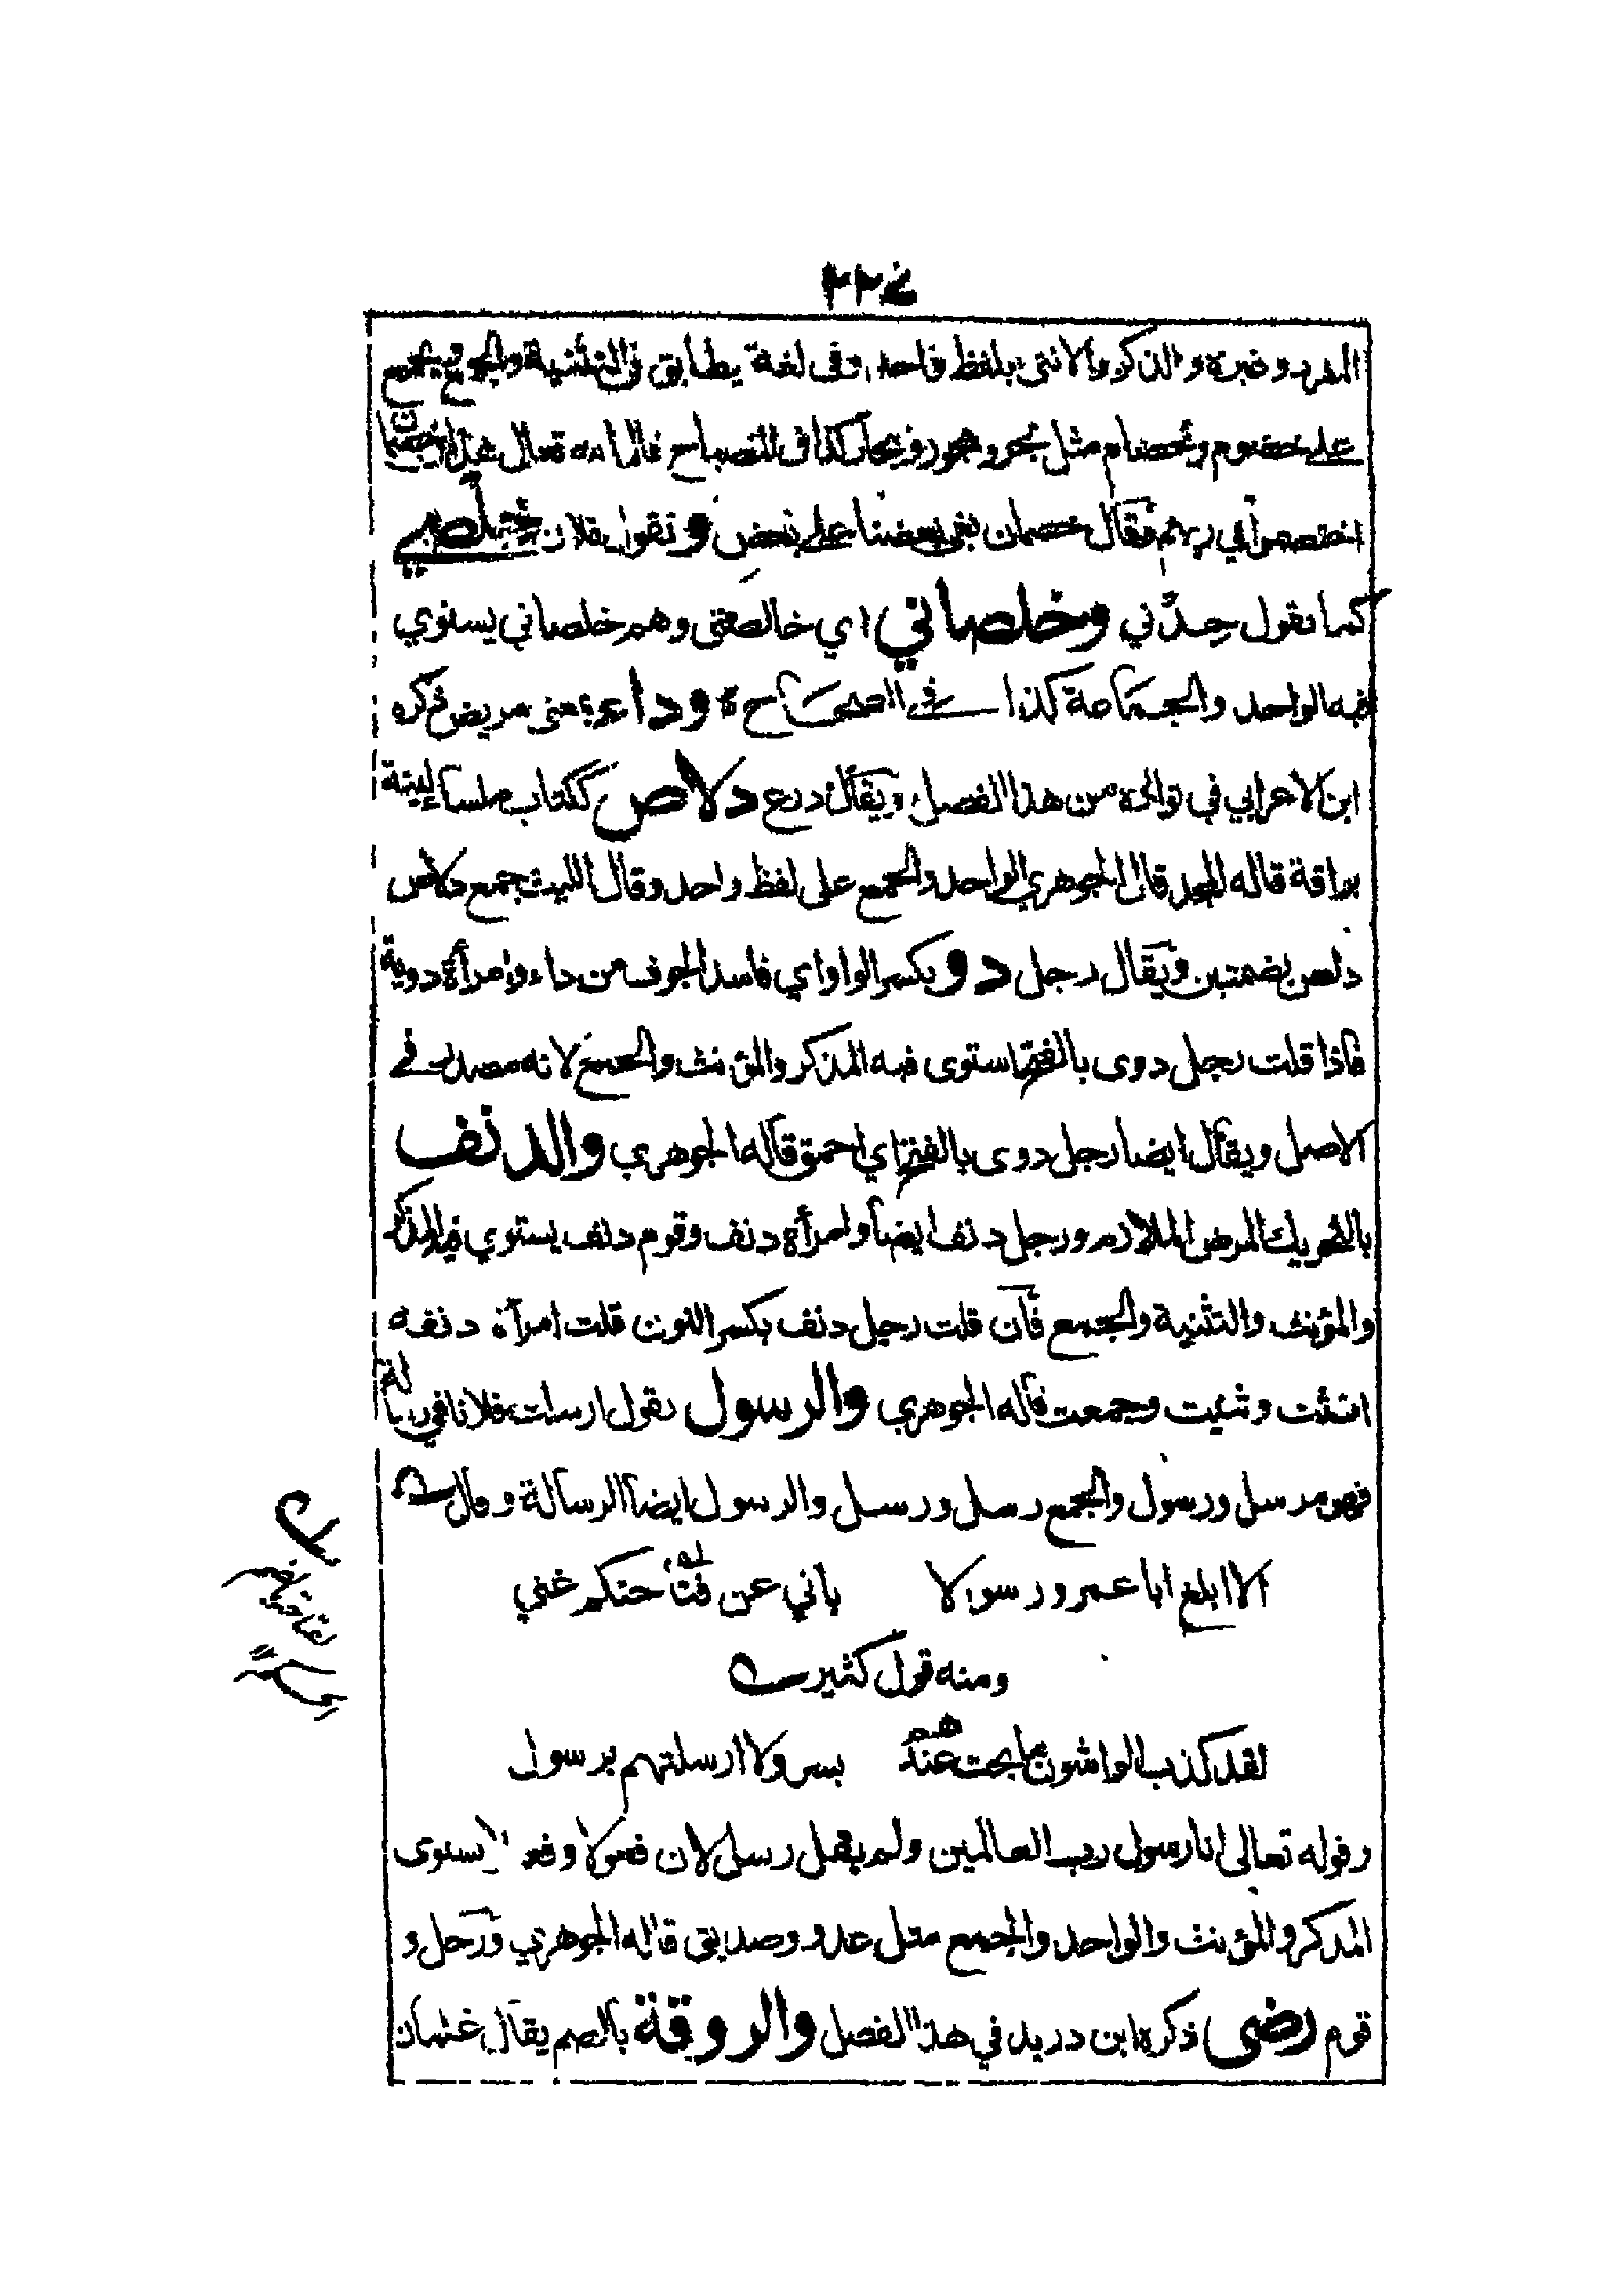 ٢٢٤
المفرد وغيره والذكر والانثى بلفظ واحد وفى لغة يطابق فى التثنية والجمع يجمع
على خصوم وخصام مثل بحر وبحور وبحار كذا فى المصباح قال الله تعالى هذان خصمان
اختصموا في ربهم فقال خصمان بغى بعضنا على بعض و تقول فلان خلصي
كما تقول خدني وخلصاني اي خالصتى وهم خلصاني يستوي
فيه الواحد والجماعة كذا في الصحاح ة وداء بمعنى مريض ذكره
ابن الاعرابي في نوادره من هذا الفصل ويقال درع دلاص ككتاب ملساء لينة
براقة قاله المجد قال الجوهري الواحد والجمع على لفظ واحد وقال الليث جمع دلاص
دلص بضمتين ويقال رجل دو بكسر الواو اي فاسد الجوف من داء وامرأة دوية
فاذا قلت رجل دوى بالفتح استوى فيه المذكر والمؤنث والجمع لانه مصدر في
الاصل ويقال ايضا رجل دوى بالفتح اي احمق قاله الجوهري والدنف
بالتحريك المرض الملازم ورجل دنف ايضا وامرأة دنف وقوم دنف يستوي فيه المذكر
والمؤنث والتثنية والجمع فان قلت رجل دنف بكسر النون قلت امرأة دنفه
انثت وثنيت وجمعت قاله الجوهري والرسول تقول ارسلت فلانا في رسالة
فهو مرسل ورسول والجمع رسل ورسل والرسول ايضا الرسالة وقال
الا ابلغ ابا عمرو رسولا باني عن فتاحتكم غني
ومنه قول كثير
لقد كذب الواشون ما بحت عندهم بسر ولا ارسلتهم برسول
وقوله تعالى انا رسول رب العالمين ولم يقل رسل لان فعولا وفعيلا يستوى
المذكر والمؤنث والواحد والجمع مثل عدو وصديق قاله الجوهري ورجل و
قوم رضى ذكره ابن دريد في هذا الفصل والروقة بالضم يقال غلمان